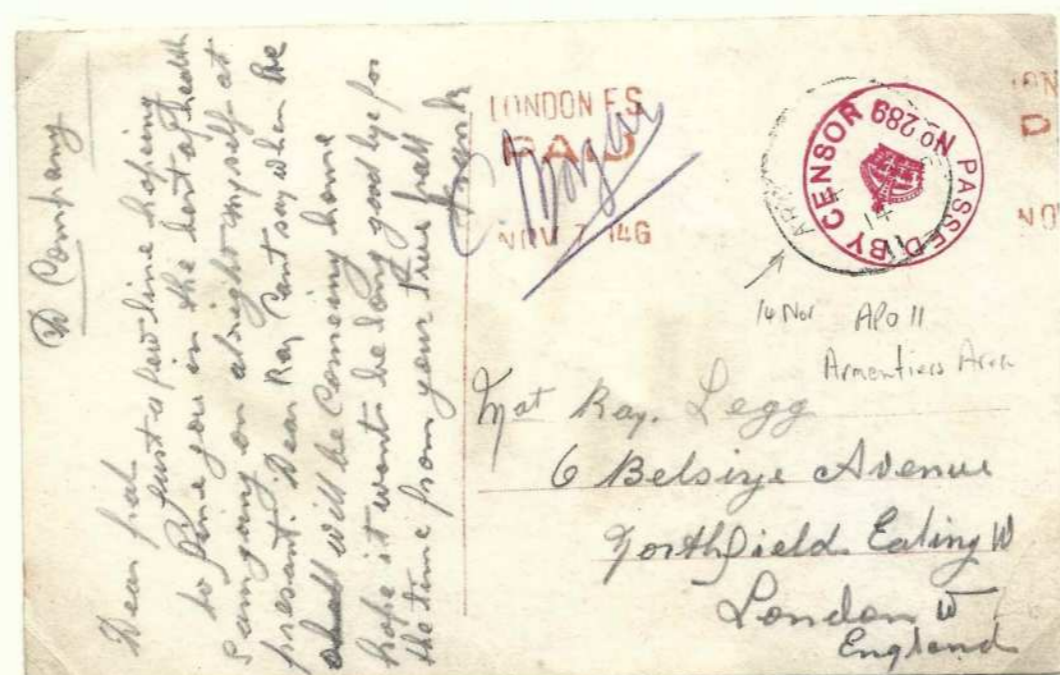 D Company
Dear pal
Just a few line hoping
to fine you in the best of health
I am going on alright myself at
present. Dear Ray Cant say when we
will be Comeing home
hope it wont be long good bye for
the time from your true pall
Frank
LONDON F.S.
PAID
NOV 7 14G
PASSED BY CENSOR
No 289
AR
14
LON
D
NO
14 Nov APO 11
Armentiers Area
Mat Ray. Legg
6 Belsize Avenue
Northfield Ealing W
London W
England